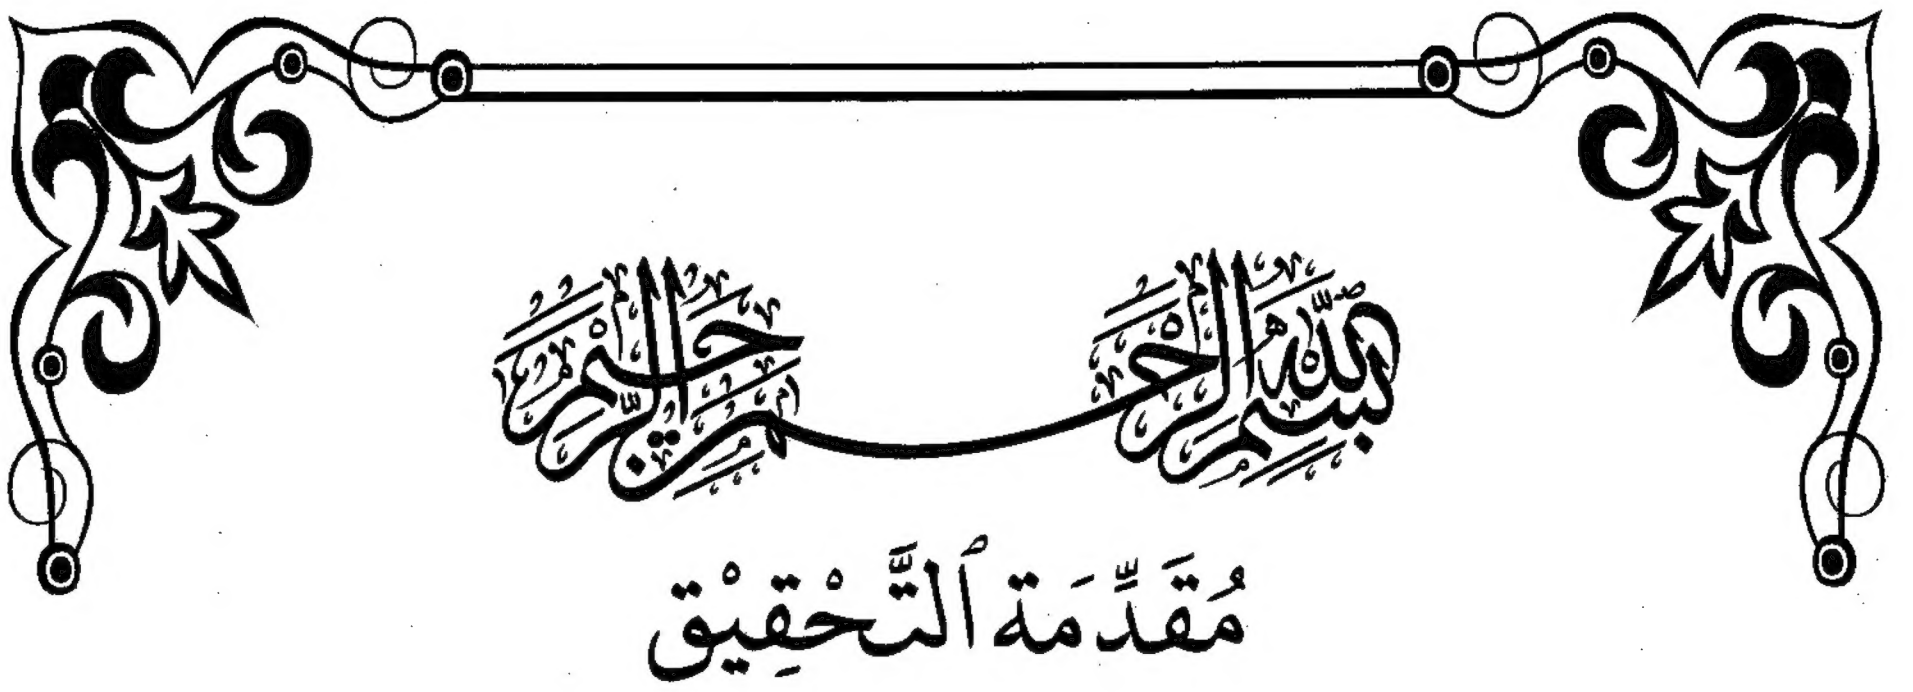 بسم الله الرحمن الرحيم
مُقَدِّمَة ٱلتَّحْقِيْق